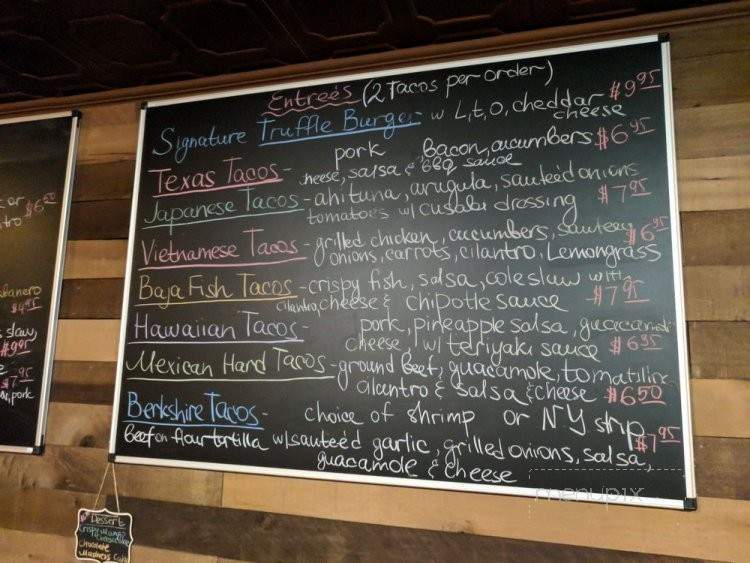 Entreés (2 Tacos per order)
Signature Truffle Burger - w L,t,O, cheddar cheese $9.95
Texas Tacos - pork Bacon, cucumbers $6.95
cheese, salsa & BBQ sauce
Japanese Tacos - ahi tuna, arugula, sauteéd onions
tomatoes w/ cusabi dressing $7.95
Vietnamese Tacos - grilled chicken, cucumbers, sauteey $6.95
onions, carrots, cilantro, Lemongrass
Baja Fish Tacos - crispy fish, salsa, coleslaw with
cilantro, cheese & chipotle sauce $7.95
Hawaiian Tacos - pork, pineapple salsa, guacamole
cheese, w/ teriyaki sauce $6.95
Mexican Hard Tacos - ground beef, guacamole, tomatillo
cilantro & salsa & cheese $6.50
Berkshire Tacos - choice of shrimp or NY strip
beef on flour tortilla w/ sauteéd garlic, grilled onions, salsa, $7.95
guacamole & cheese
menupix
or
$6.50
abanero
$4.95
slaw,
$9.95
$7.95
pork
Dessert
Chocolate